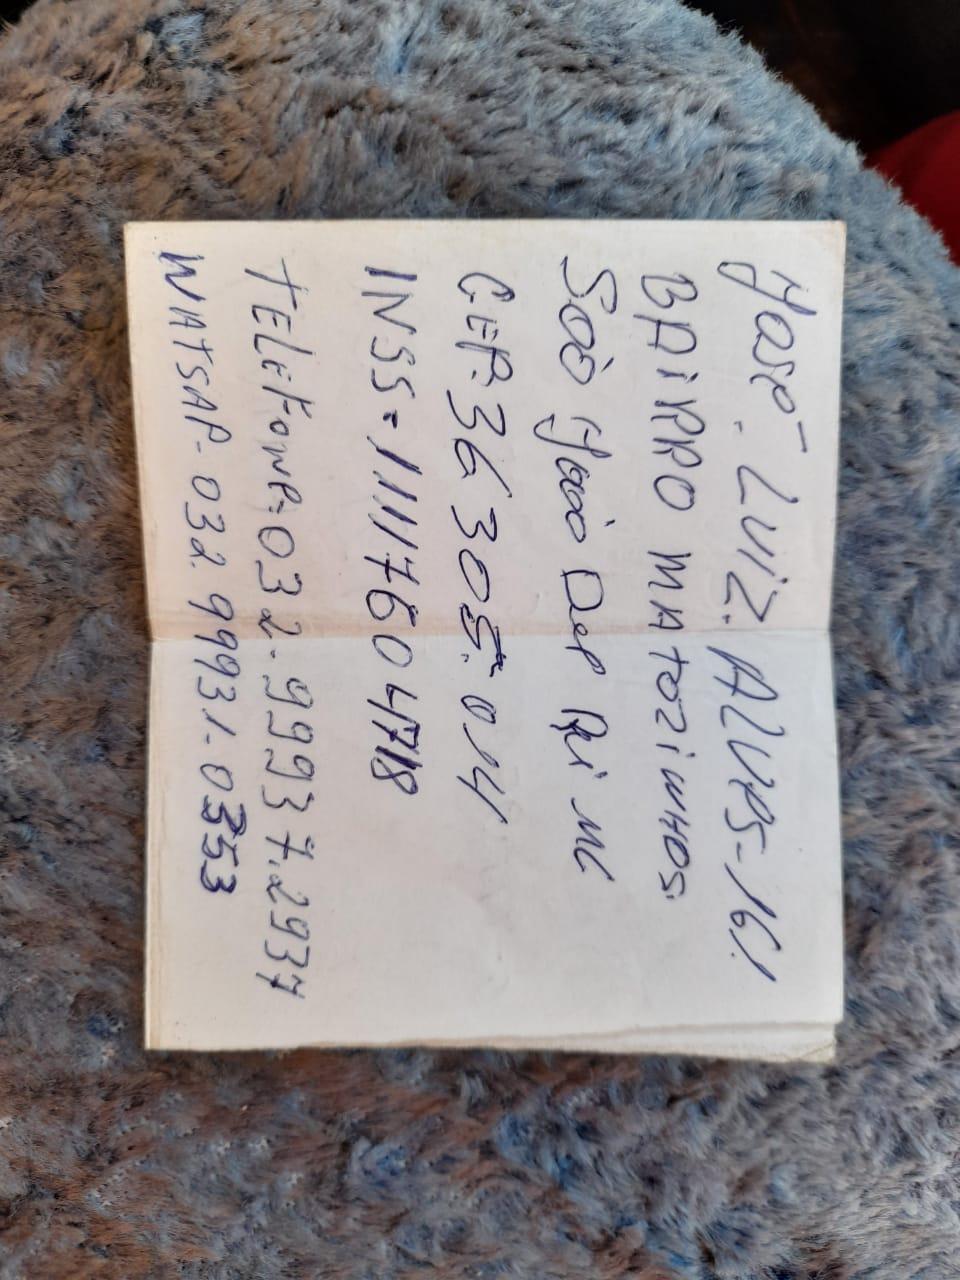 José - Luiz. ALVES-161
BAIRRO MATOZINHOS.
São João Del Rei MG
CEP. 36305.014
INSS = 11117604718
TELEFONE. 032.99937.2937
WATSAP- 032.99931-0353